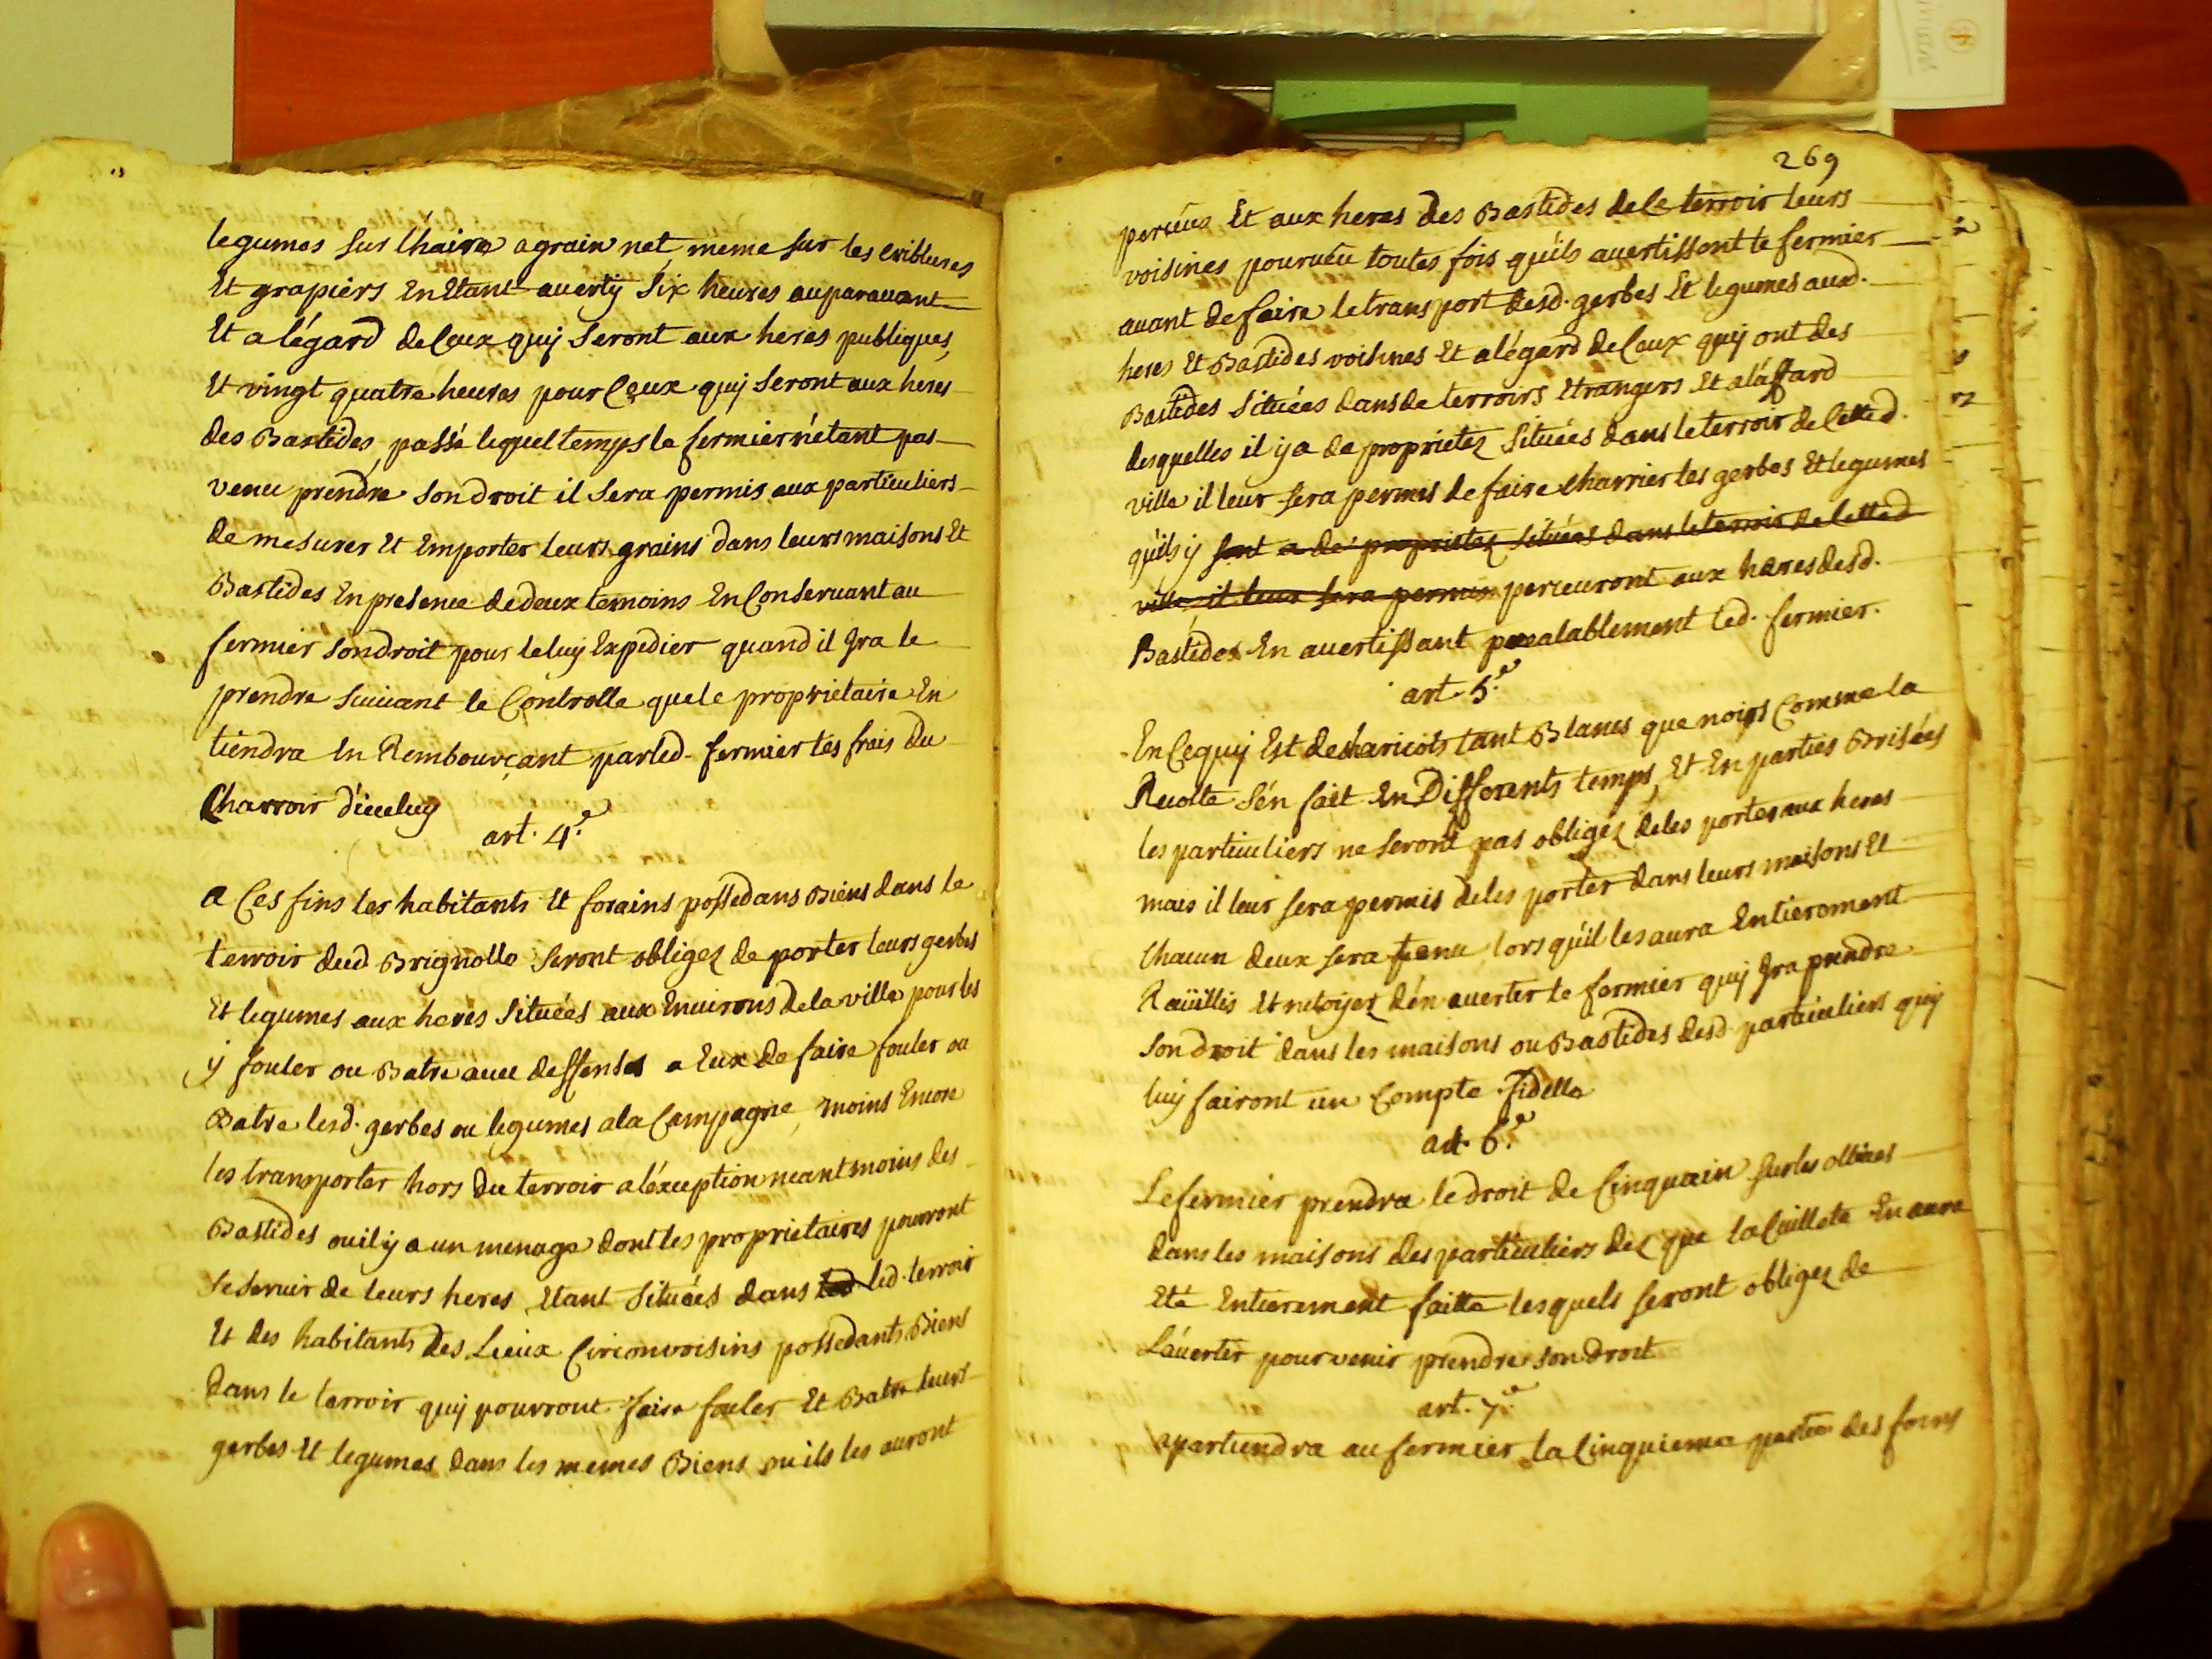 legumes sur l'haire a grain net, meme sur les criblures
Et grapiers En Etant averty six heures auparavant
Et a légard de Ceux quy seront aux heres publiques,
Et vingt quatre heures pour Ceux quy seront aux heres
des Bastides, passé lequel temps le fermier n'étant pas
venu prendre son droit il sera permis aux particuliers
de mesurer Et Emporter leurs grains dans leurs maisons Et
Bastides En presence de deux temoins En Conservant au
fermier son droit pour le luy Expedier quand il Jra le
prendre suivant le Controlle que le proprietaire En
tiendra En Rembourçant par led. fermier les frais du
Charroir d'iceluy
art. 4.e
a Ces fins les habitants Et forains possedans Biens dans le
terroir dud Brignolle seront obligez de porter leurs gerbes
Et legumes aux heres situées aux Environs de la ville pour les
y fouler ou Batre avec deffenses a Eux de faire fouler ou
Batre lesd. gerbes ou legumes a la Campagne, moins Encore
les transporter hors du terroir a léxception neantmoins des
Bastides ou il y a un menage dont les proprietaires pourront
se servir de leurs heres, Etant situées dans led led. terroir
Et des habitants des Lieux Circonvoisins possedants Biens
dans le terroir quy pourront faire fouler Et Batre leurs
gerbes Et legumes dans les memes Biens ou ils les auront
269
perceus Et aux heres des Bastides de Ce terroir leurs
voisines pourveu toutes fois qu'ils avertissent le fermier
avant de faire le transport desd. gerbes Et legumes aud.
heres Et Bastides voisines Et a légard de Ceux quy ont des
Bastides situées dans de terroirs Etrangers Et a láffard
desquelles il y a de proprietez situées dans le terroir de Cette d.
ville il leur sera permis de faire charrier les gerbes Et legumes
qu'ils y sont a de proprietez situées dans le terroir de Cette d
ville, il leur sera permis perceuront aux heres desd.
Bastides En avertissant prealablement led. fermier.
art. 5.e
En Ce quy Est de haricots tant Blancs que noirs Comme la
Recolte s'en fait En Differents temps, Et En parties Brisées
les particuliers ne seront pas obligéz de les porter aux heres
mais il leur sera permis de les porter dans leurs maisons Et
Chacun deux sera tenu lors qu'il les aura Entierement
Raüillis Et netoyez d'en averter le fermier quy Jra prendre
son droit dans les maisons ou Bastides desd. particuliers quy
luy fairont un Compte fidelle
art. 6.e
Le fermier prendra le droit de Cinquain sur les ollives
dans les maisons des particuliers dez que la Cuillete En aura
Eté Entierement faitte lesquels seront obligez de
L'averter pour venir prendre son droit
art. 7.e
apartiendra au fermier la Cinquieme partie des foins